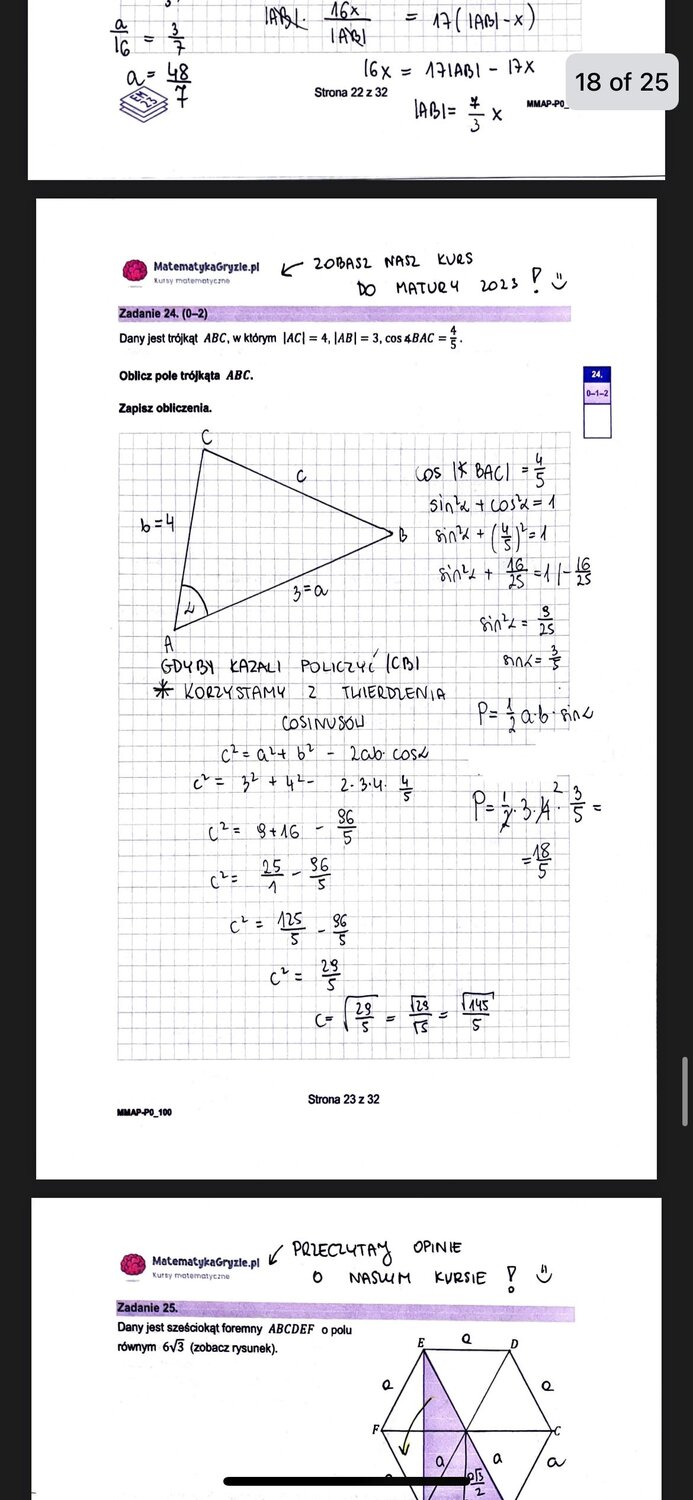 a/16 = 3/7
|AB| · 16x/|AB| = 17(|AB|-x)
a = 48/7
16x = 17|AB| - 17x
18 of 25
Strona 22 z 32
MMAP-P0_
|AB| = 7/3 x
MatematykaGryzie.pl
Kursy matematyczne
← ZOBASZ NASZ KURS
DO MATURY 2023 !
Zadanie 24. (0–2)
Dany jest trójkąt ABC, w którym |AC| = 4, |AB| = 3, cos∢BAC = 4/5.
Oblicz pole trójkąta ABC.
24.
0–1–2
Zapisz obliczenia.
C
c
b=4
B
3=a
α
A
cos |∢ BAC| = 4/5
sin²α + cos²α = 1
sin²α + (4/5)² = 1
sin²α + 16/25 = 1 |-16/25
sin²α = 9/25
sinα = 3/5
P = 1/2 a·b·sinα
P = 1/2·3·4²·3/5 =
= 18/5
GDYBY KAZALI POLICZYĆ |CB|
* KORZYSTAMY Z TWIERDZENIA
COSINUSÓW
c² = a² + b² - 2ab·cosα
c² = 3² + 4² - 2·3·4·4/5
c² = 9+16 - 96/5
c² = 25/1 - 96/5
c² = 125/5 - 96/5
c² = 29/5
c = √(29/5) = √29/√5 = √145/5
Strona 23 z 32
MMAP-P0_100
MatematykaGryzie.pl
Kursy matematyczne
PRZECZYTAJ OPINIE
O NASZYM KURSIE !
Zadanie 25.
Dany jest sześciokąt foremny ABCDEF o polu
równym 6√3 (zobacz rysunek).
E a D
a a
F C
a a a
a√3/2